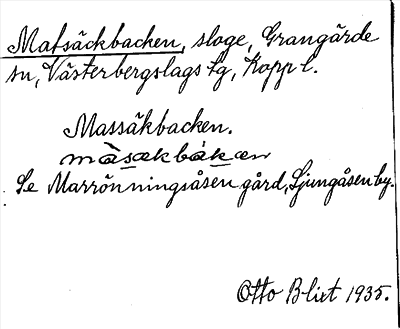 Matsäckbacken, sloge, Grangärde
sn, Västerbergslags tg, Kopp l.
Massäkbacken.
màsækbákæn
Se Marrönningsåsen gård, Ljungåsen by.
Otto Blixt 1935.